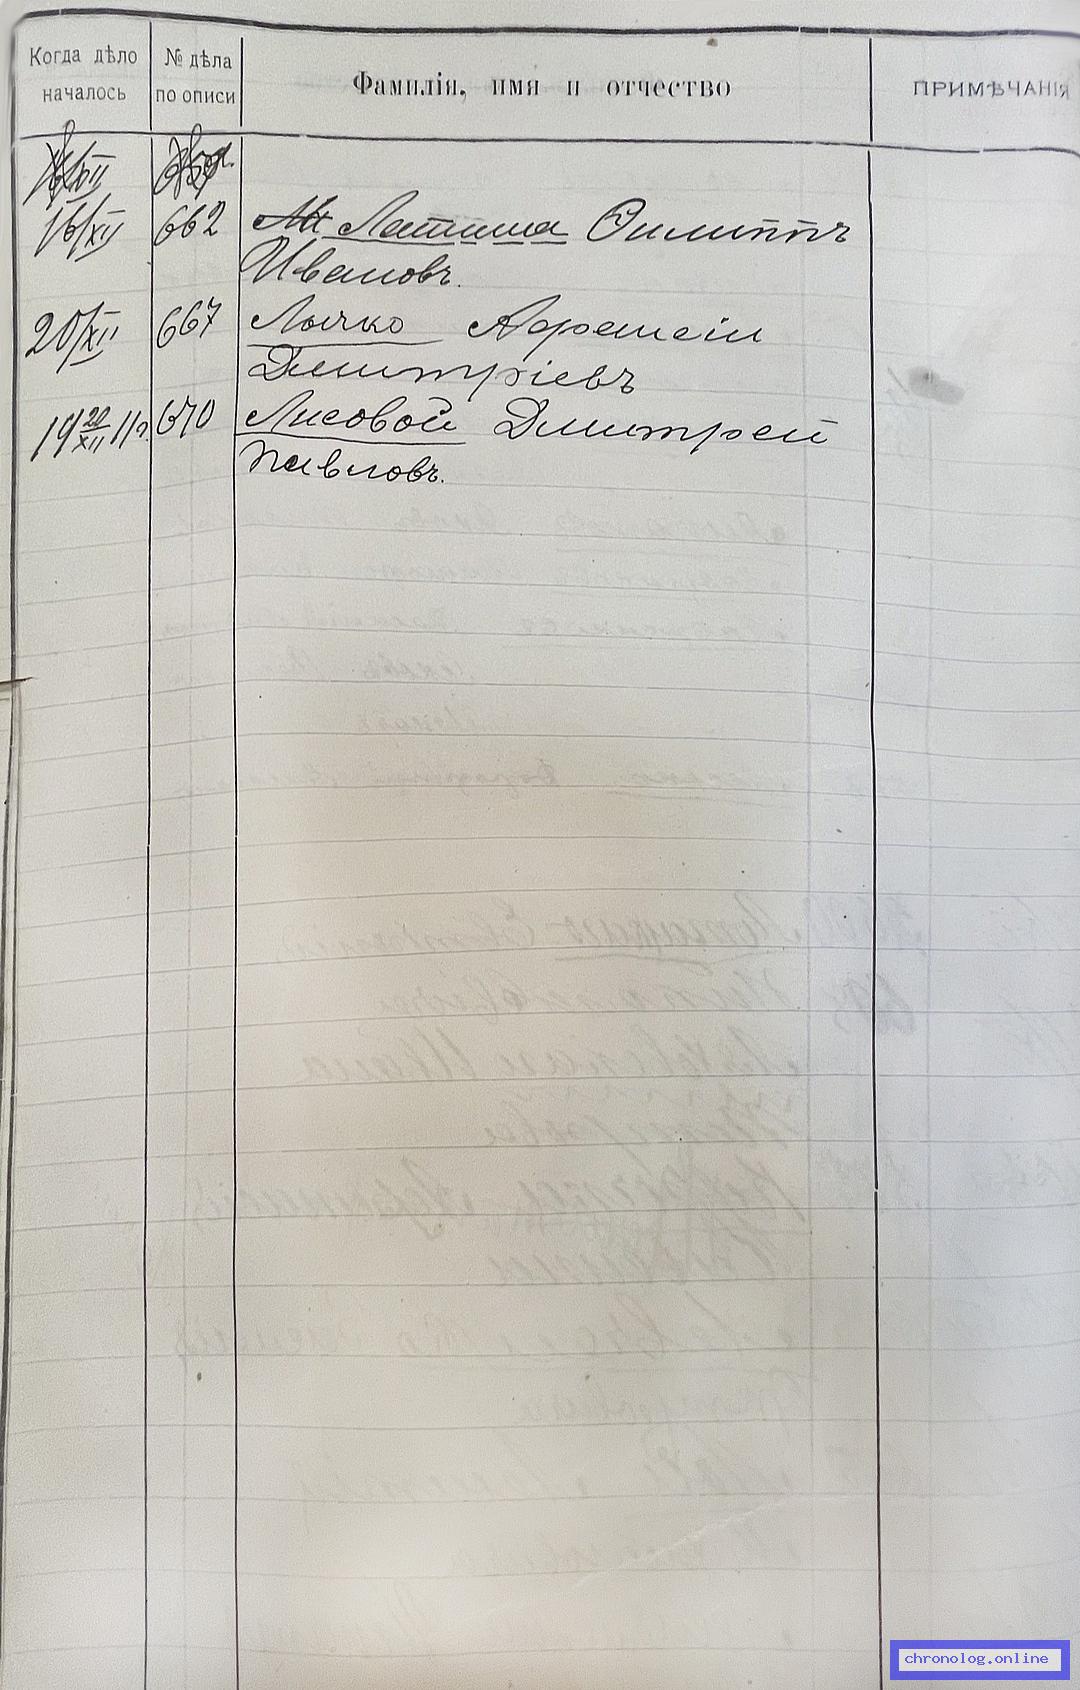 Когда дѣло началось № дѣла по описи Фамилія, имя и отчество ПРИМѢЧАНІЯ
16/XII 662 Латыша Филиппъ
Ивановъ.
20/XII 667 Лычко Афанасій
Дмитріевъ
19 20/XII 11 г. 670 Лисовой Дмитрей
Павловъ.
chronolog.online